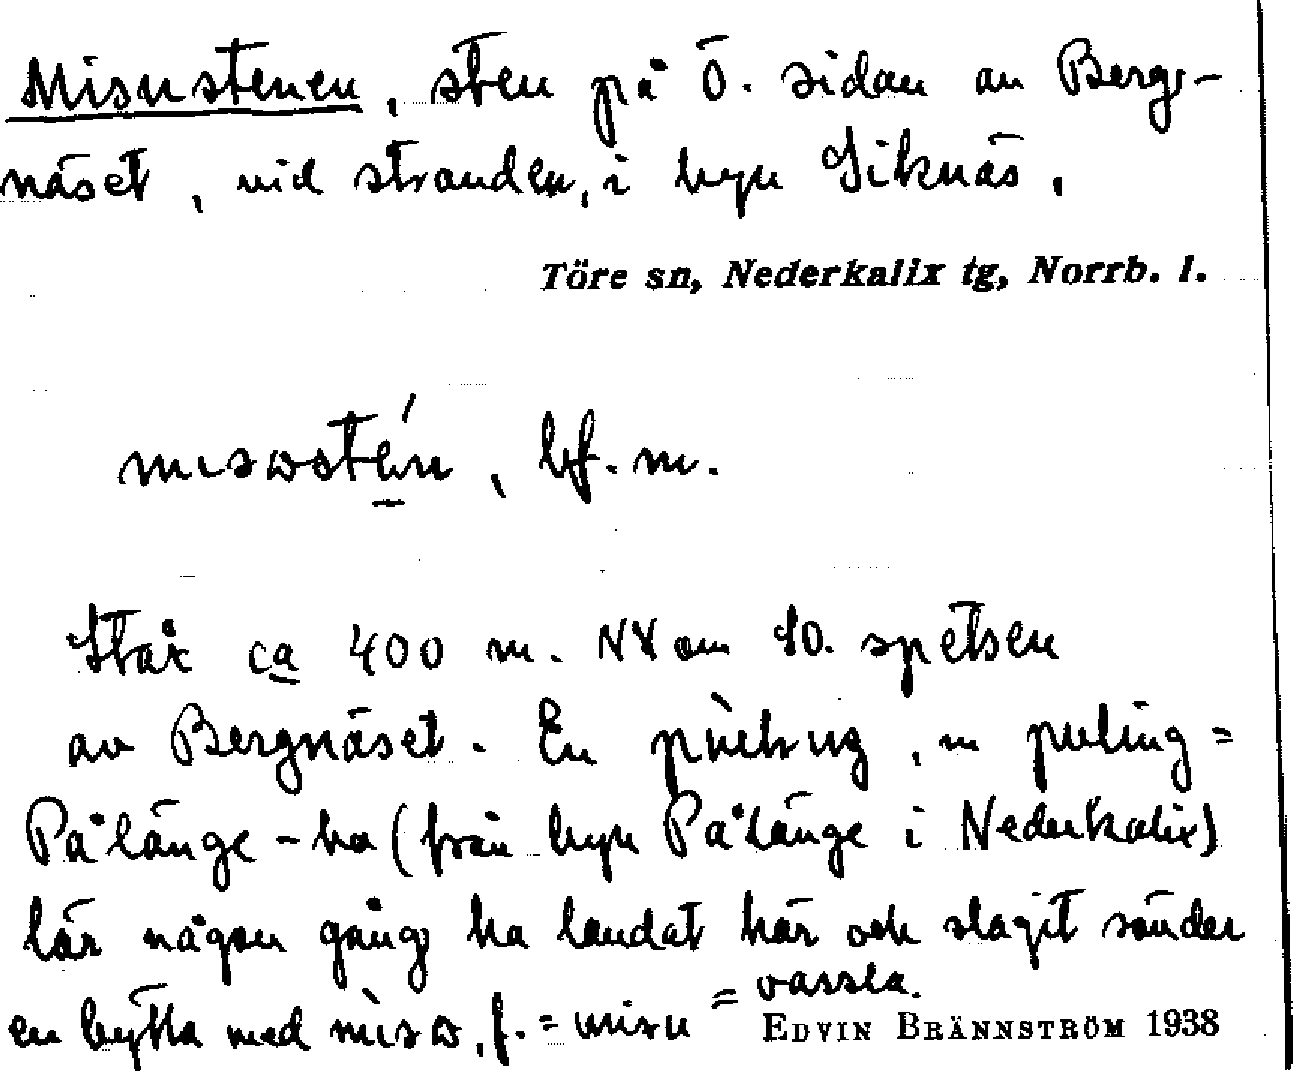 Misustenen, sten på Ö. sidan av Berg-
näset, vid stranden, i byn Siknäs.
Töre sn, Nederkalix tg, Norrb. l.
mɩsωstén, bf. m.
Står ca 400 m. NV om SO. spetsen
av Bergnäset. En
Pålänge-bo (från byn Pålänge i Nederkalix)
lär någon gång ha landat här och slagit sönder
en bytta med mìsω, f. = misu = vassla.
EDVIN BRÄNNSTRÖM 1938